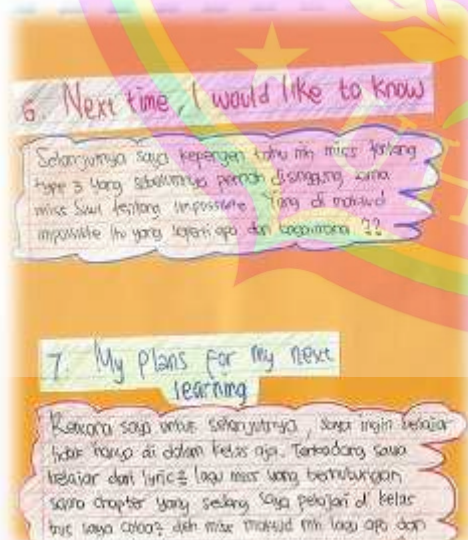 6. Next time, I would like to know
Selanjutnya saya kepengen tahu nih miss tentang
type 3 yang sebelumnya pernah disinggung sama
miss Suwi tentang impossible. Yang di maksud
impossible itu yang seperti apa dan bagaimana ??
7. My plans for my next
learning
Rencana saya untuk selanjutnya, saya ingin belajar
tidak hanya di dalam kelas aja. Terkadang saya
belajar dari lyric2 lagu miss yang berhubungan
sama chapter yang sedang saya pelajari di kelas
saya coba2 deh miss maksud nih lagu apa dan